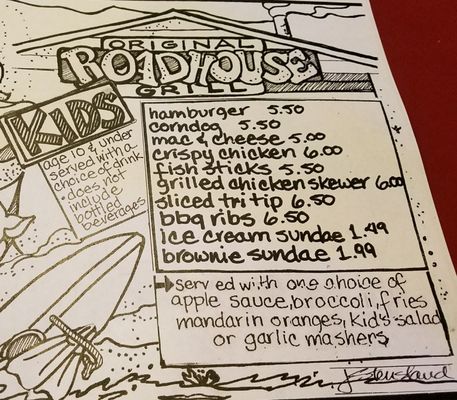 ORIGINAL
ROADHOUSE
GRILL
KIDS'
age 10 & under
served with a
choice of drink
• does not
include
bottled
beverages
hamburger 5.50
corndog 5.50
mac & cheese 5.00
crispy chicken 6.00
fish sticks 5.50
grilled chicken skewer 6.00
sliced tri tip 6.50
bbq ribs 6.50
ice cream sundae 1.49
brownie sundae 1.99
served with one choice of
apple sauce, broccoli, fries
mandarin oranges, kid's salad
or garlic mashers